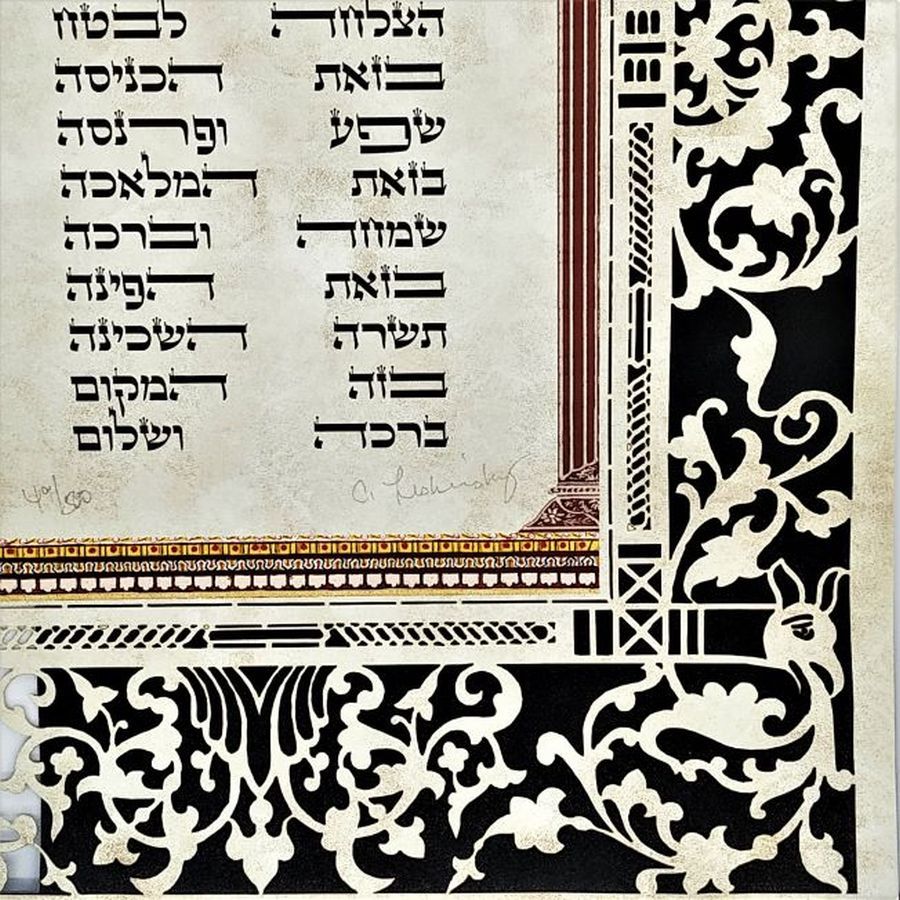 הצלחה לבטח
בזאת הכניסה
שפע ופרנסה
בזאת המלאכה
שמחה וברכה
בזאת הפינה
תשרה השכינה
בזה המקום
ברכה ושלום